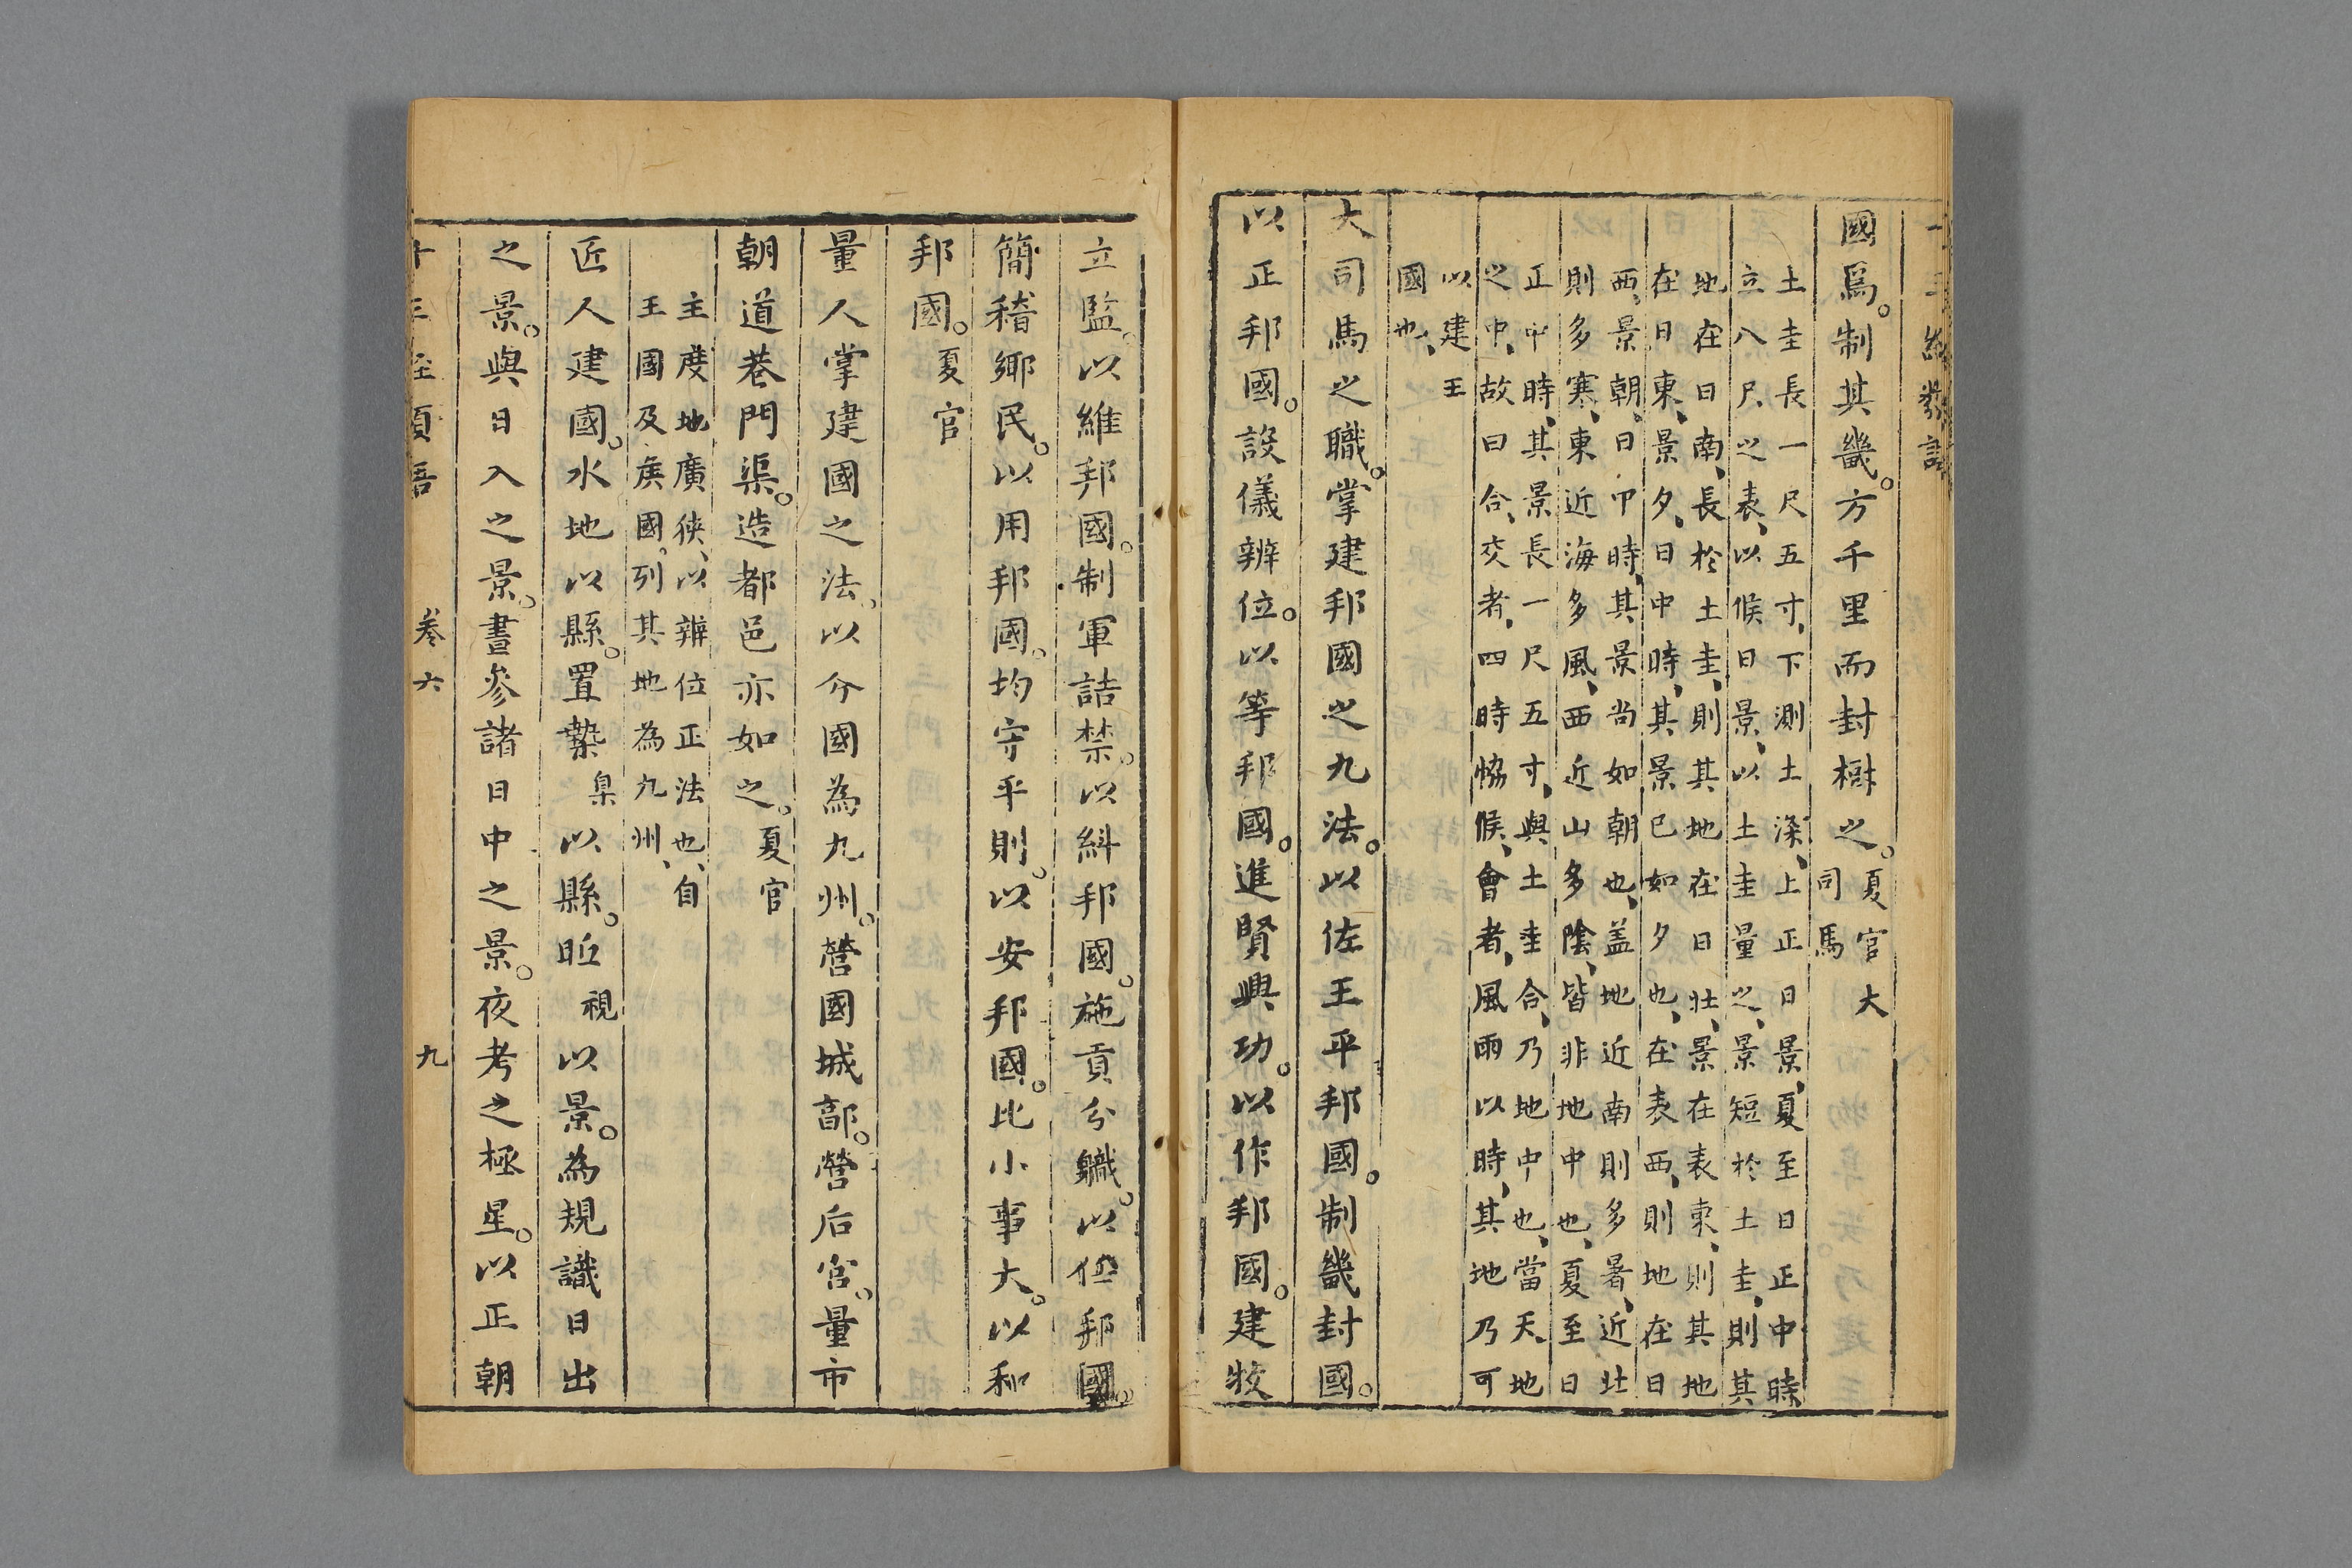 國焉。制其畿。方千里而封樹之。夏官大
司馬
土圭長一尺五寸、下測土深、上正日景、夏至日正中時
立八尺之表、以候日景、以土圭量之、景短於土圭、則其
地在日南、長於土圭、則其地在日北、景在表東、則其地
在日東、景夕、日中時、其景已如夕也、在表西、則地在日
西、景朝、日中時、其景尚如朝也、盖地近南則多暑、近北
則多寒、東近海多風、西近山多陰、皆非地中也、夏至日
正中時、其景長一尺五寸、與土圭合、乃地中也、當天地
之中、故曰合、交者、四時恊候、會者、風雨以時、其地乃可
以建王
國也、
大司馬之職。掌建邦國之九法。以佐王平邦國。制畿封國。
以正邦國。設儀辨位。以等邦國。進賢興功。以作邦國。建牧
立監。以維邦國。制軍詰禁。以糾邦國。施貢分職。以任邦國。
簡稽鄉民。以用邦國。均守平則。以安邦國。比小事大。以和
邦國。夏官
量人掌建國之法。以分國為九州。營國城郭。營后宮。量市
朝道巷門渠。造都邑亦如之。夏官
主度地廣狹、以辨位正法也、自
王國及矦國、列其地為九州、
匠人建國。水地以縣。置槷臬以縣。眂視以景。為規識日出
之景。與日入之景。晝參諸日中之景。夜考之極星。以正朝
卷六 九